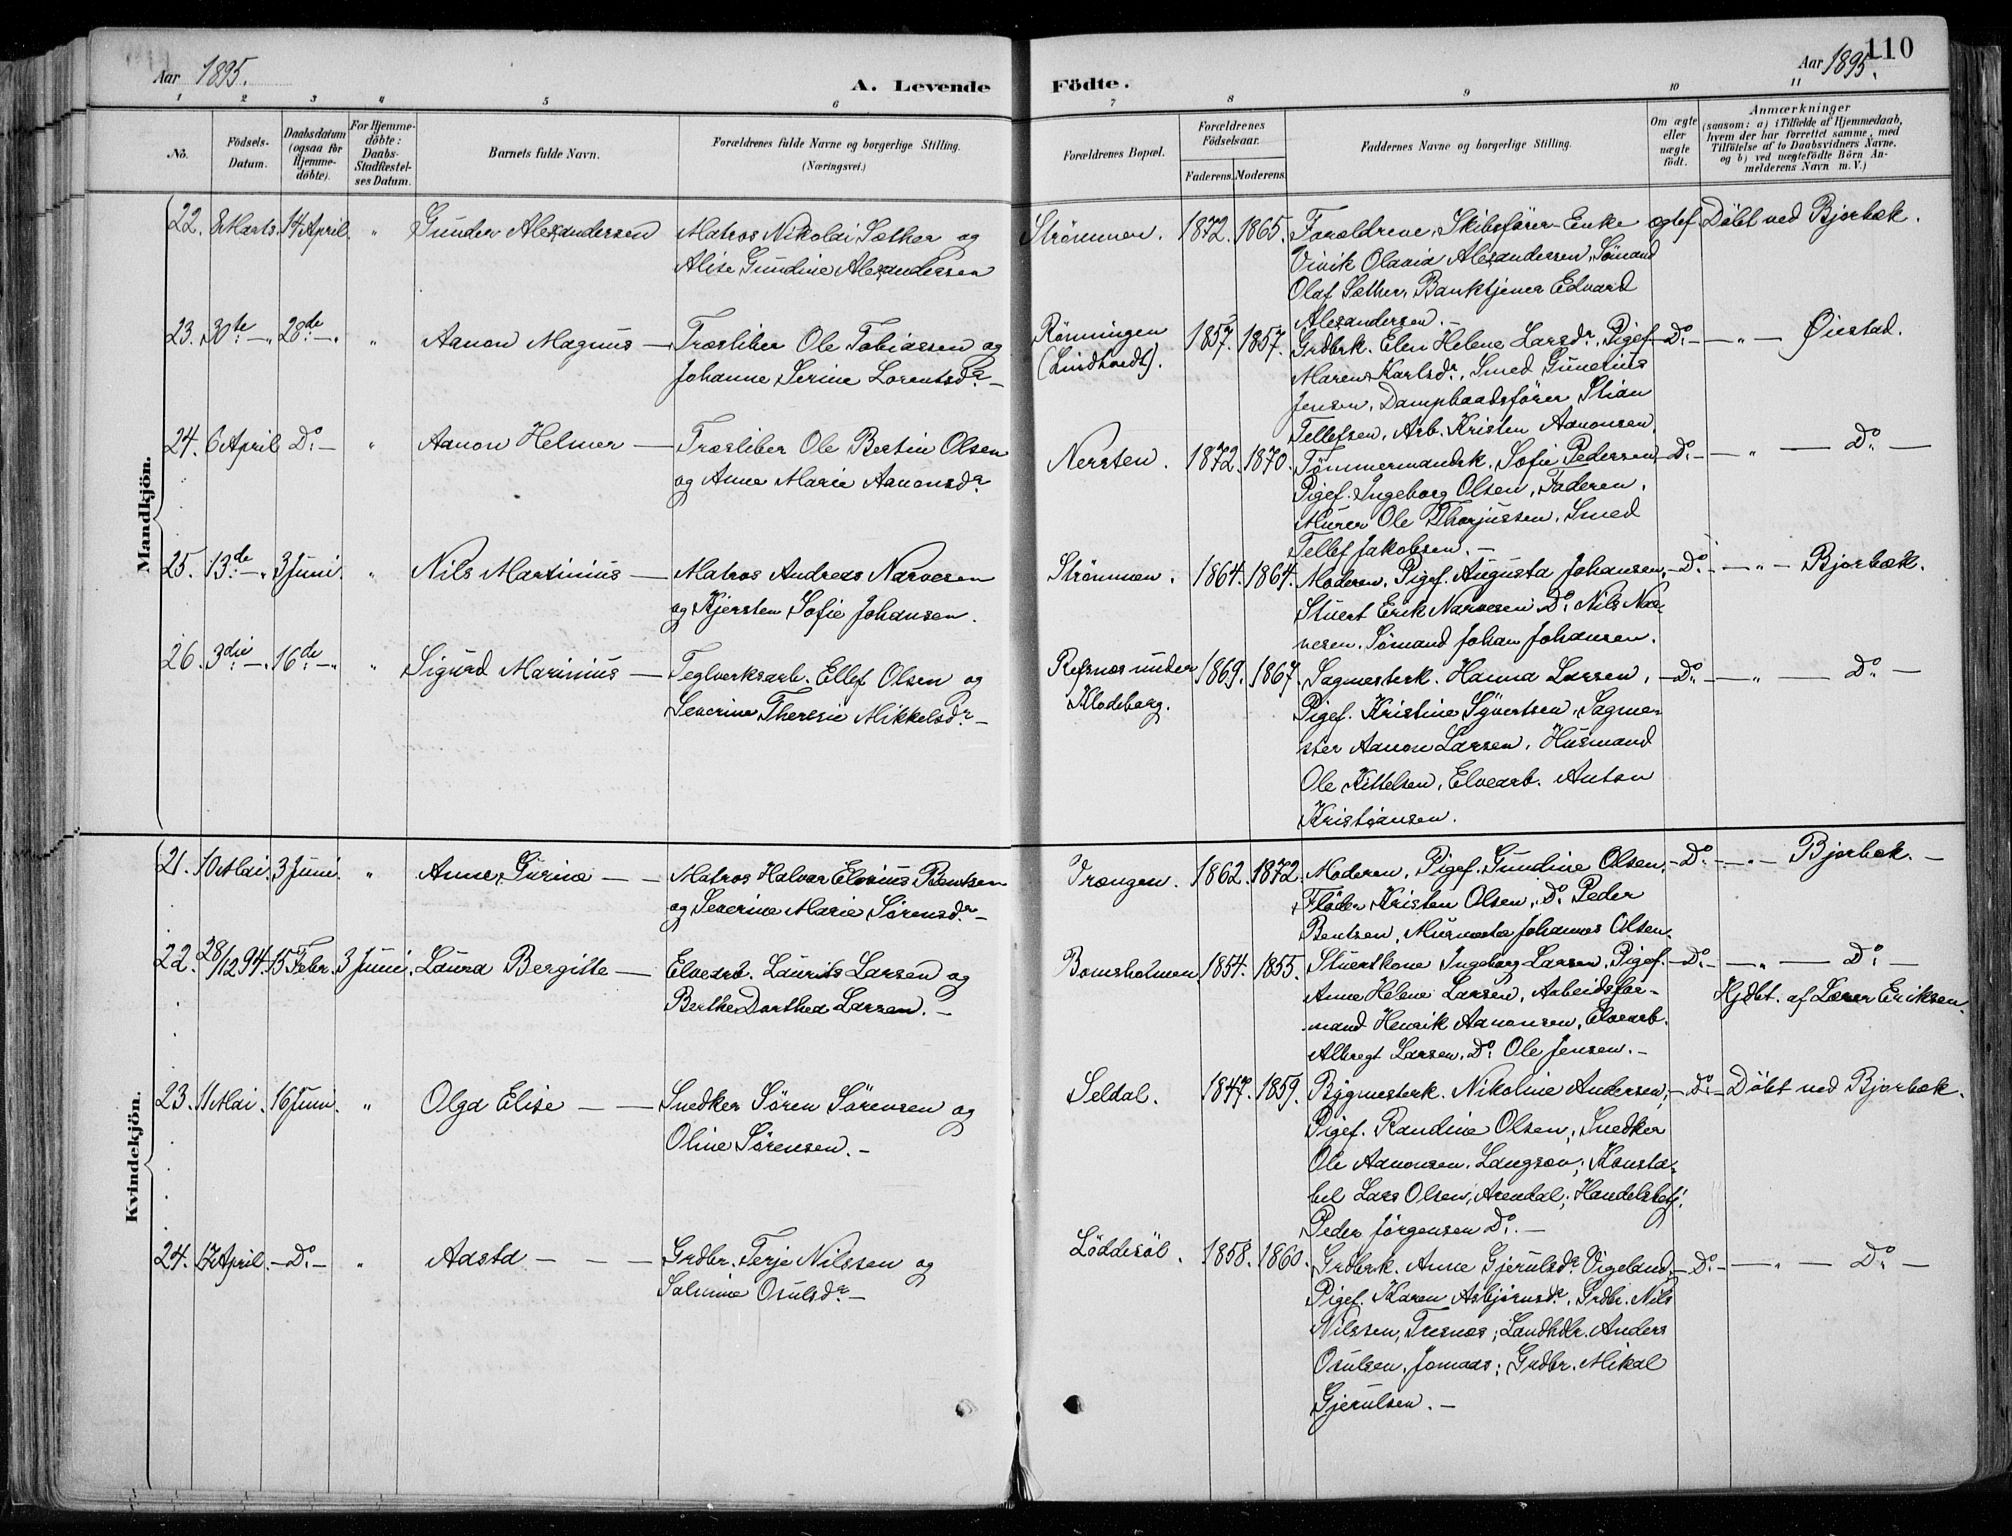 Aar 1895.
A. Levende
Födte.
Aar 1895.
110
1 2 3 4 5 6 7 8 9 10 11
No.
Födsels-Datum.
Daabsdatum (ogsaa for Hjemme-döbte).
For Hjemme-döbte: Daabs-Stadfæstel-ses Datum.
Barnets fulde Navn.
Forældrenes fulde Navne og borgerlige Stilling. (Næringsvei.)
Forældrenes Bopæl.
Forældrenes Födselsaar.
Faderens. Moderens.
Faddernes Navne og borgerlige Stilling.
Om ægte eller uægte födt.
Anmærkninger (saasom: a) i Tilfælde af Hjemmedaab, hvem der har forrettet samme, med Tilföielse af to Daabsvidners Navne. og b) ved uægtefödte Börn An-melderens Navn m. V.)
Mandkjön.
22. 8 Marts. 14 April " Gunder Alexandersen Matros Nikolai Sæther og
Alise Gundine Alexandersen
Strømmen. 1872. 1865. Forældrene, Skibsfører Enke ægtef. Døbt ved Bjorbæk.
Vivik Olavia Alexandersen, Sømand
Olaf Sæther, Banktjener Edvard
Alexandersen.
23. 30te —„ 28de —„ " Aanon Magnus — Træsliber Ole Tobiassen og
Johanne Serine Lorentsdr. —
Rønningen
(Lindtvedt).
1857. 1857. Grdbrk. Elen Helene Larsdr, Pigef. — Do. — „ — Øiestad.
Maren Karlsdr, Smed Gunelius
Jensen, Dampbaadsfører Stian
Tellefsen, Arb. Kristen Aanonsen.
24. 6 April Do. — " Aanon Helmer — Træsliber Ole Bertin Olsen
og Anne Marie Aanonsdr
Nersten. 1872. 1870. Tømmermandsk. Sofie Pedersen, Do. — „ — Do. —
Pigef. Ingeborg Olsen, Faderen,
Murer Ole Thorjussen, Smed
Tellef Jakobsen. —
25. 13de —„ 3 Juni. " Nils Martinius — Matros Andreas Narvesen
og Kjersten Sofie Johansen.
Strømmen. 1864. 1864. Moderen, Pigef. Augusta Johansen, — Do. — „ — Bjorbæk.
Stuert Erik Narvesen Do. Nils Nar-
vesen, Sømand Johan Johansen.
26. 3die —„ 16de —„ " Sigurd Marinius — Teglverksarb. Ellef Olsen og
Severine Theresie Mikkelsdr —
Refsnes under
Klodeborg.
1869. 1867. Sagmesterk. Hanna Larsen, — Do. — „ — Do. —
Pigef. Kristine Syvertsen, Sagme-
ster Aanon Larsen, Husmand
Ole Kittelsen, Elvearb. Anton
Kristiansen.
Kvindekjön.
21. 10 Mai. 3 Juni. " Anne Gurine — — Matros Halvor Elovius Bentsen
og Severine Marie Sørensdr. —
Vrængen. 1862. 1872. Moderen, Pigef. Gundine Olsen, — Do. — „ — Bjorbæk. —
Fløder Kristen Olsen, Do. Peder
Bentsen, Murmester Johannes Olsen.
22. 28/12 94. 15 Febr. 3 Juni. Laura Bergitte — Elvearb. Laurits Larsen og
Berthe Dorthea Larsen. —
Bomsholmen. 1854. 1855. Stuertkone Ingeborg Larsen, Pigef. — Do. — „ — Do. —
Hjdbt. af Lærer Eriksen.
Anne Helene Larsen, Arbeidsfor-
mand Henrik Aanonsen, Elvearb.
Albregt Larsen, Do. Ole Jensen. —
23. 11 Mai. 16 Juni. " Olga Elise — — Snedker Søren Sørensen og
Oline Sørensen. —
Seldal. 1847. 1859. Bygmesterk. Nikoline Andersen, — Do. — Døbt ved Bjorbæk.
Pigef. Randine Olsen, Snedker
Ole Aanonsen, Langsæv; Konsta-
bel Lars Olsen, Arendal; Handelsbetj.
Peder Jørgensen Do. —
24. 17 April. — Do. — " Aasta — — — Grdbr. Terje Nilssen og
Salmine Osulsdr. —
Løddesøl. 1858. 1860. Grdbrk. Anne Gjerulsdr Vigeland, — Do. — „ — Do. —
Pigef. Karen Asbjørnsdr, Grdbr. Nils
Nilssen, Fresnes; Landhdlr. Anders
Osulsen, Jomaas; Grdbr. Mikal
Gjerulsen. —